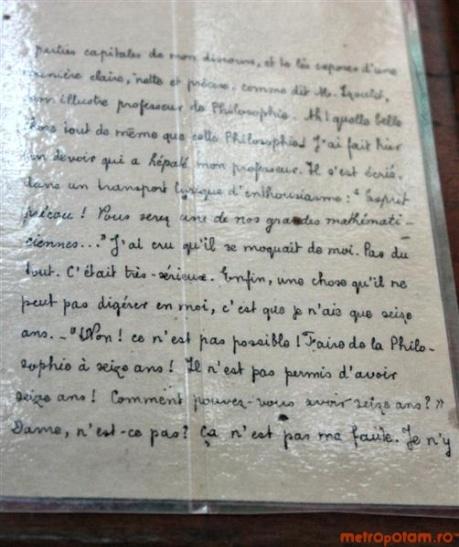 parties capitales de mon discours, et de les exposer d'une
manière claire, nette et précise, comme dit M.
mon illustre professeur de Philosophie. Ah! quelle belle
chose tout de même que cette Philosophie! J'ai fait hier
un devoir qui a hépaté mon professeur. Il s'est écrié,
dans un transport lyrique d'enthousiasme: "Esprit
! Vous serez une de nos grandes mathémati-
ciennes..." J'ai cru qu'il se moquait de moi. Pas du
tout. C'était très-sérieux. Enfin, une chose qu'il ne
peut pas digérer en moi, c'est que je n'aie que seize
ans. - "Non! ce n'est pas possible! Faire de la Philo-
sophie à seize ans! Il n'est pas permis d'avoir
seize ans! Comment pouvez-vous avoir seize ans?"
Dame, n'est-ce pas? Ça n'est pas ma faute. Je n'y
metropotam.ro